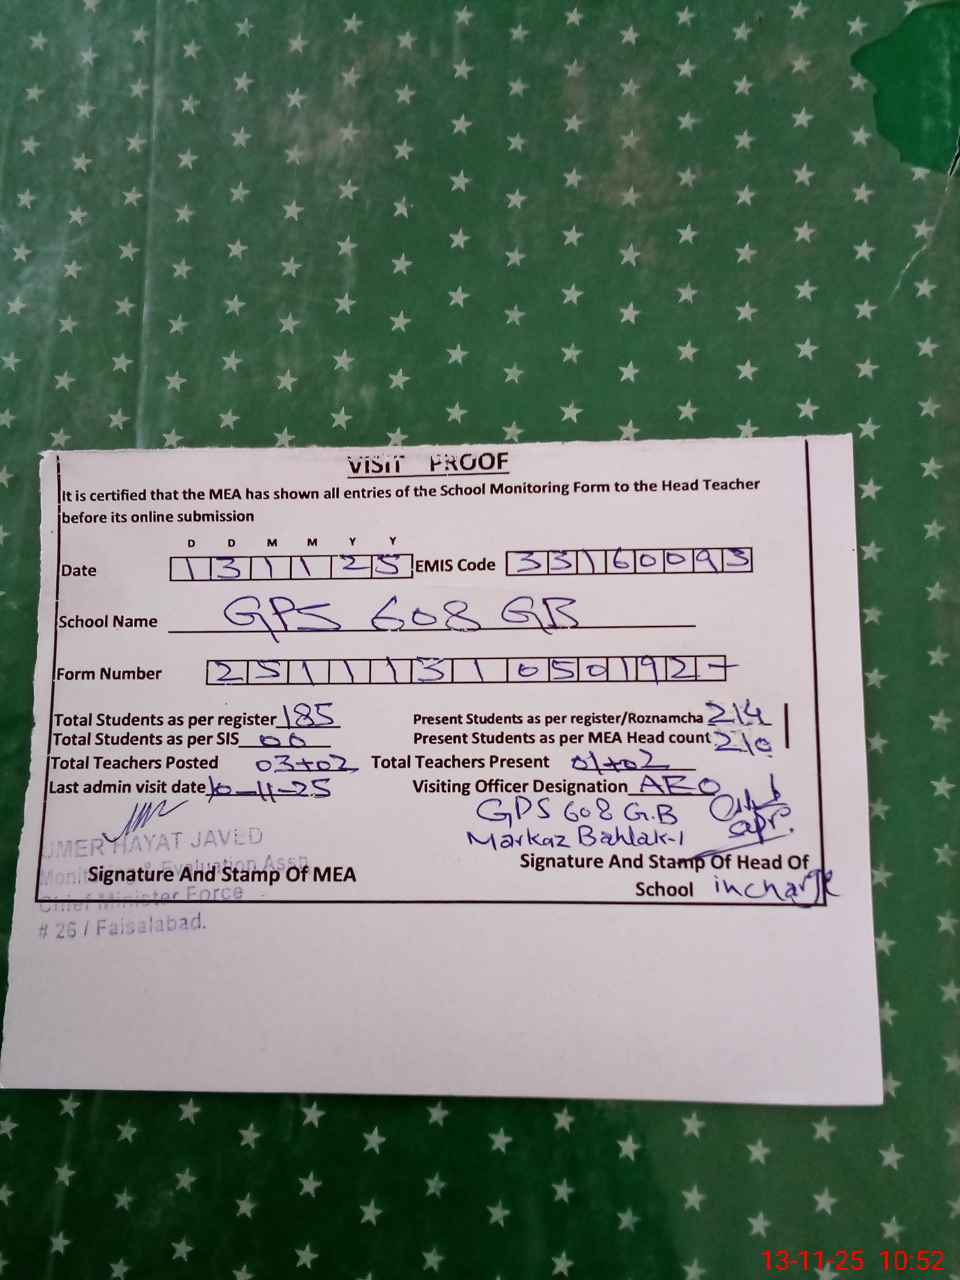 VISIT PROOF
It is certified that the MEA has shown all entries of the School Monitoring Form to the Head Teacher
before its online submission
D D M M Y Y
Date 131125 EMIS Code 33160093
School Name GPS 608 GB
Form Number 2511131050192-
Total Students as per register 185 Present Students as per register/Roznamcha 214
Total Students as per SIS 00 Present Students as per MEA Head count 210
Total Teachers Posted 03+02 Total Teachers Present 01+02
Last admin visit date 10-11-25 Visiting Officer Designation AEO
GPS 608 G.B
UMER HAYAT JAVED Markaz Bahlak-1
Monitoring & Evaluation Asstt
Signature And Stamp Of MEA Signature And Stamp Of Head Of
Chief Minister Force School incharge
# 26 / Faisalabad.
13-11-25 10:52